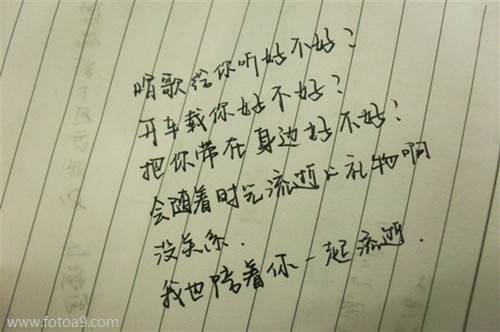 唱歌给你听好不好？
开车载你好不好？
把你带在身边好不好？
会随着时光流逝的礼物啊
没关系.
我也陪着你一起流逝.
www.fotoa9.com